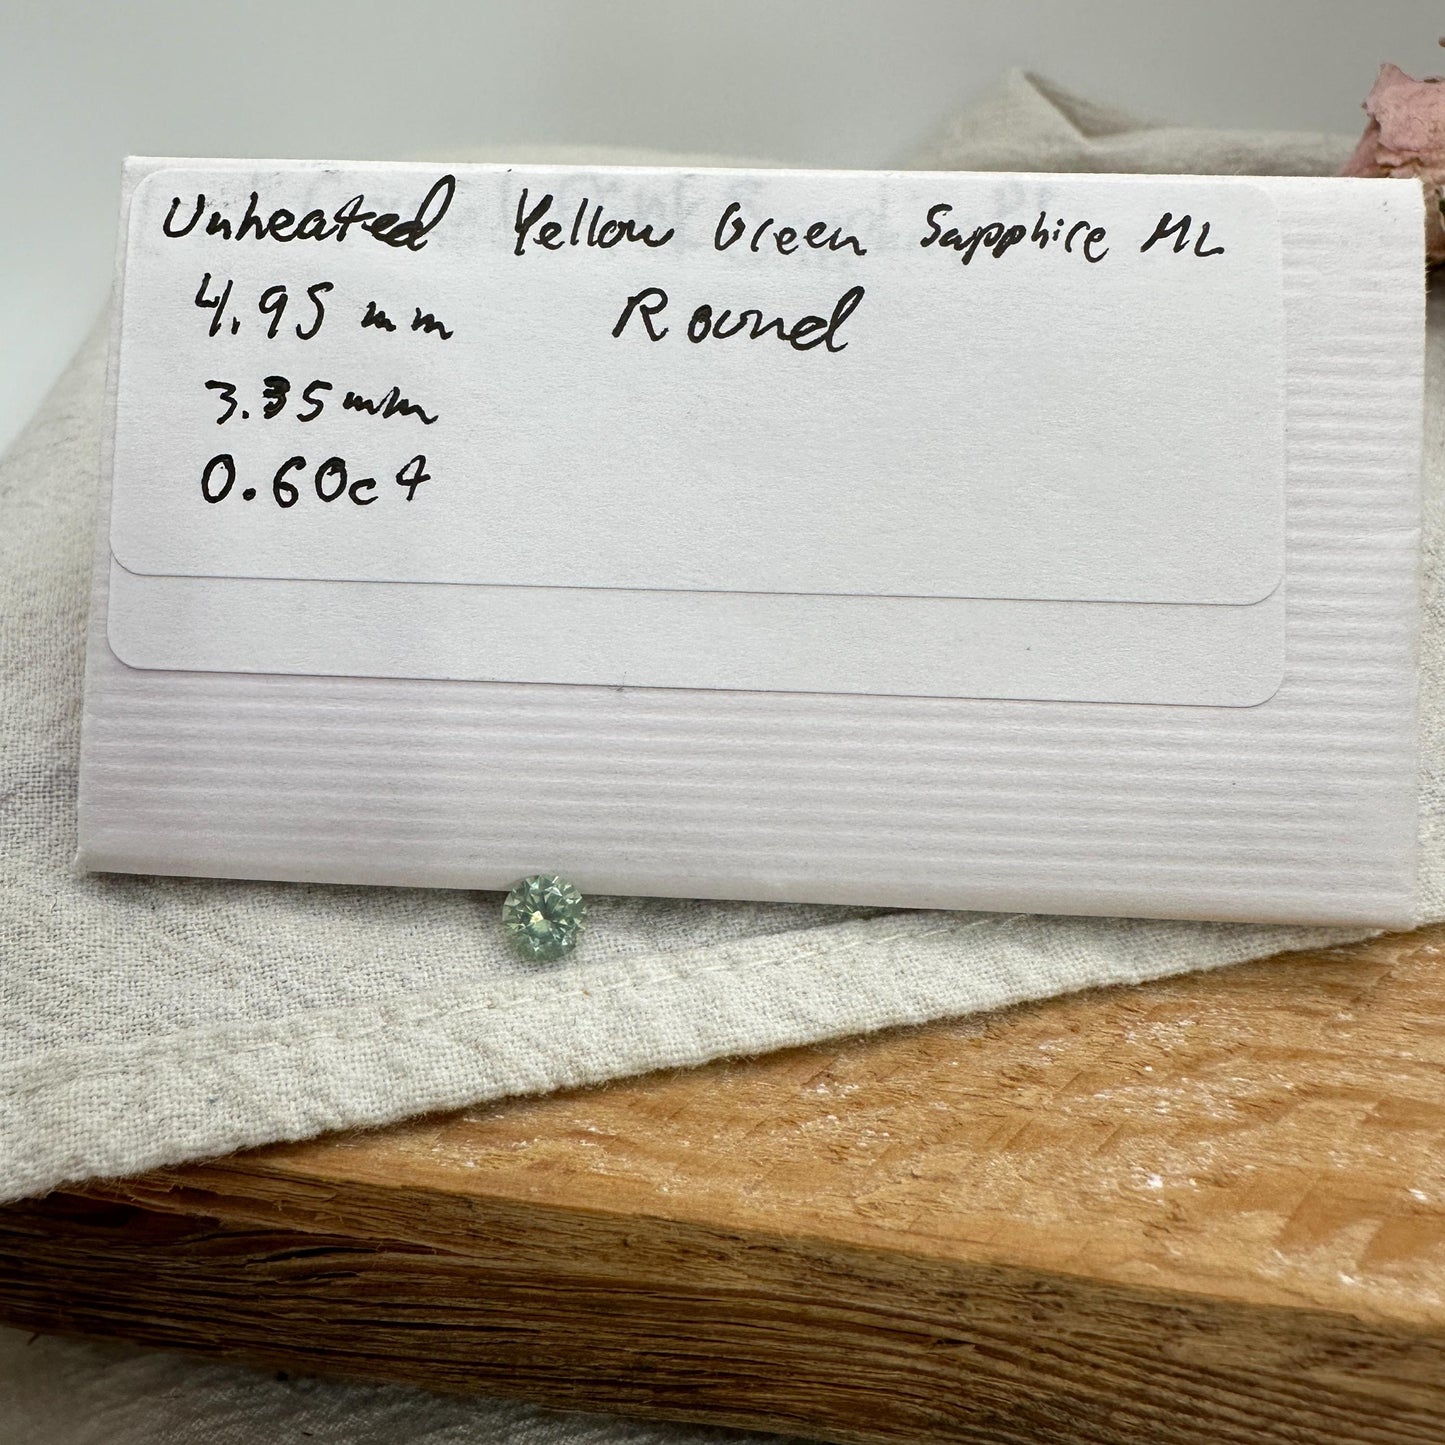 Unheated Yellow Green Sapphire ML
4.95 mm Round
3.35 mm
0.60ct